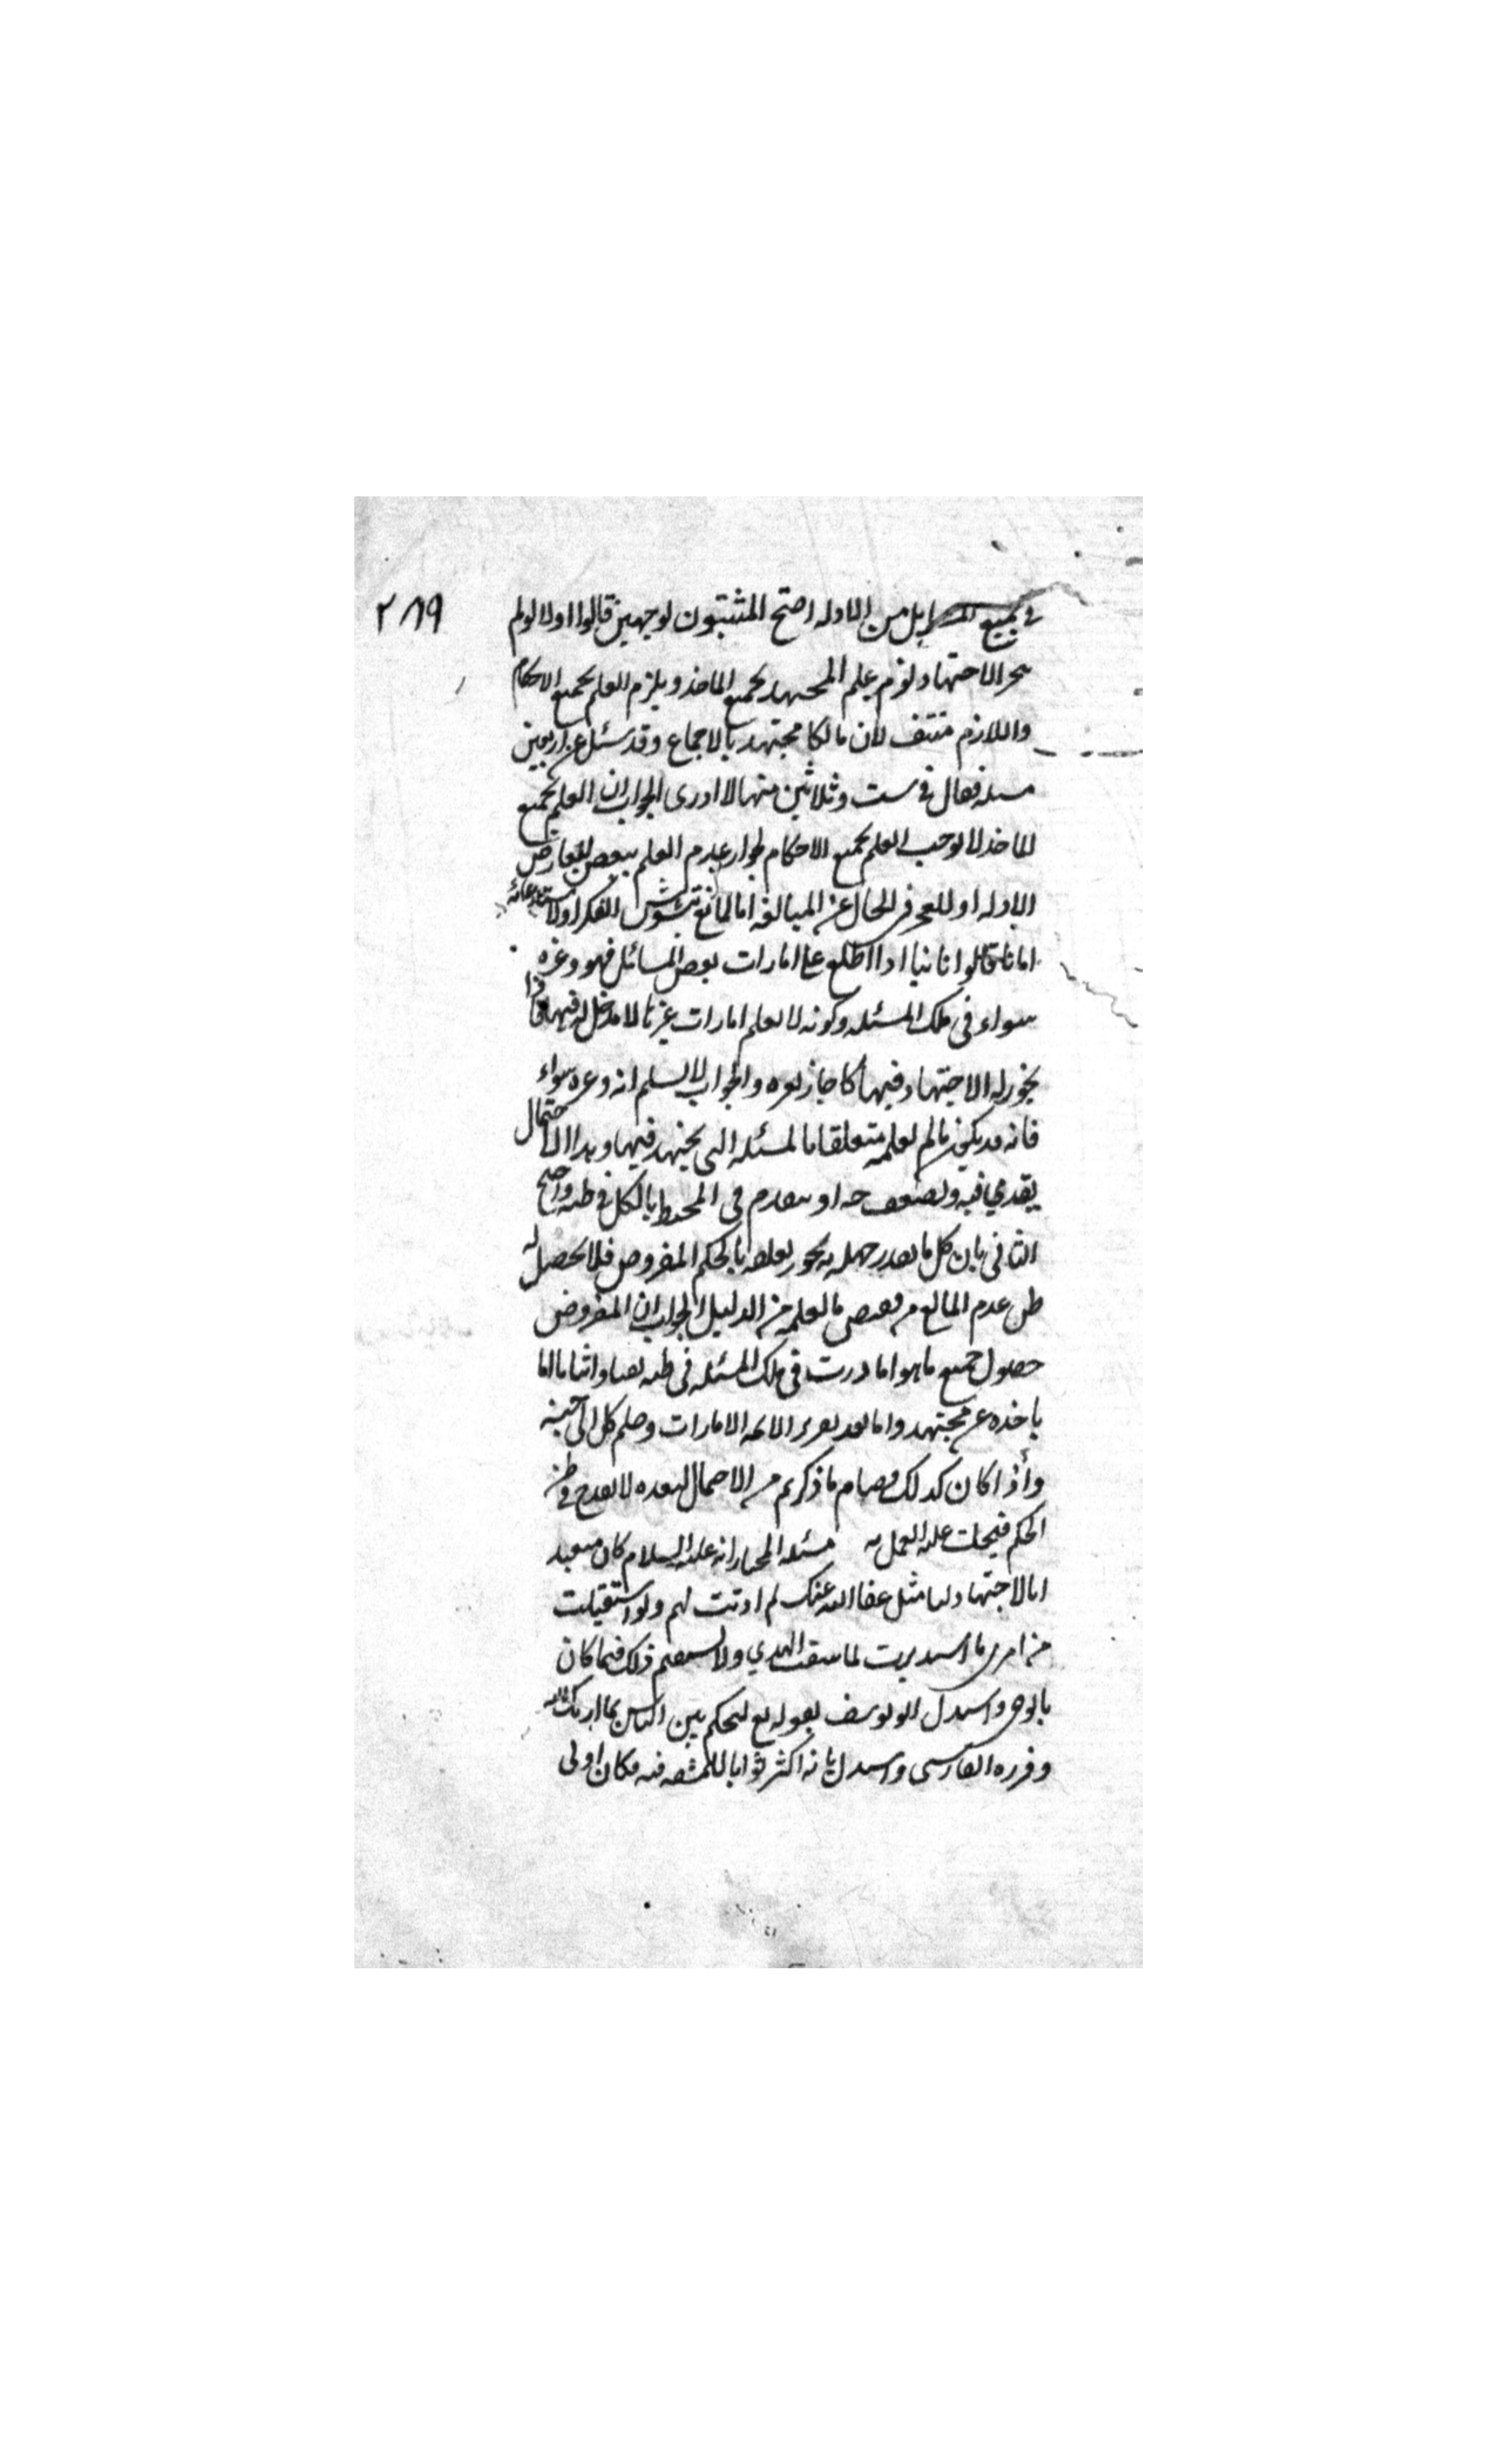 ٢٨٩
في جميع المسايل من الادله احتج المثبتون لوجهين قالوا اولا لو لم
يتجز الاجتهاد لزم علم المجتهد بجميع الماخذ ويلزم العلم بجميع الاحكام
واللازم منتف لان مالكا مجتهد بالاجماع وقد سئل عن اربعين
مسئلة فقال في ست وثلاثين منها لا ادرى الجواب ان العلم بجميع
الماخذ لا يوجب العلم بجميع الاحكام لجواز عدم العلم ببعض لتعارض
الادله او للعجز في الحال عن المبالغه اما لمانع تشوش الفكر او
اما ناقالوا ثانيا اذا اطلع على امارات بعض المسائل فهو وغيره
سواء في تلك المسئله وكونه لا يعلم امارات غيرها لا مدخل له فيها فاذا
يجوز له الاجتهاد فيها كما جاز لغيره والجواب لا نسلم انه وغيره سواء
فانه قد يكون ما لم يعلمه متعلقا بالمسئله التي يجتهد فيها وهذا الاحتمال
يقوي فيه ويضعف او ينعدم في المحيط بالكل في ظنه واحتج
الثاني بان كل ما يقدر جهله به يجوز تعلقه بالحكم المفروض فلا يحصل له
ظن عدم المانع من مقتضى ما يعلمه من الدليل الجواب ان المفروض
حصول جميع ما هو امارت في تلك المسئله في ظنه نفيا واثباتا اما
باخذه عن مجتهد واما بعد تقرير الائمه الامارات وضم كل الى جنبه
واذا كان كذلك فقيام ما ذكرتم من الاحتمال لبعده لا يقدح في ظن
الحكم فيجب عليه العمل به مسئله المختار انه عليه السلام كان متعبد
بالاجتهاد لنا مثل عفا الله عنك لم اذنت لهم ولو استقبلت
من امري ما استدبرت لما سقت الهدي ولا يستقيم ذلك فيما كان
بالوحي واستدل ابو يوسف بقوله تع لتحكم بين الناس بما اريك الله
وقرره الفارسي واستدل بانه اكثر ثوابا للمشقه فيه فكان اولى